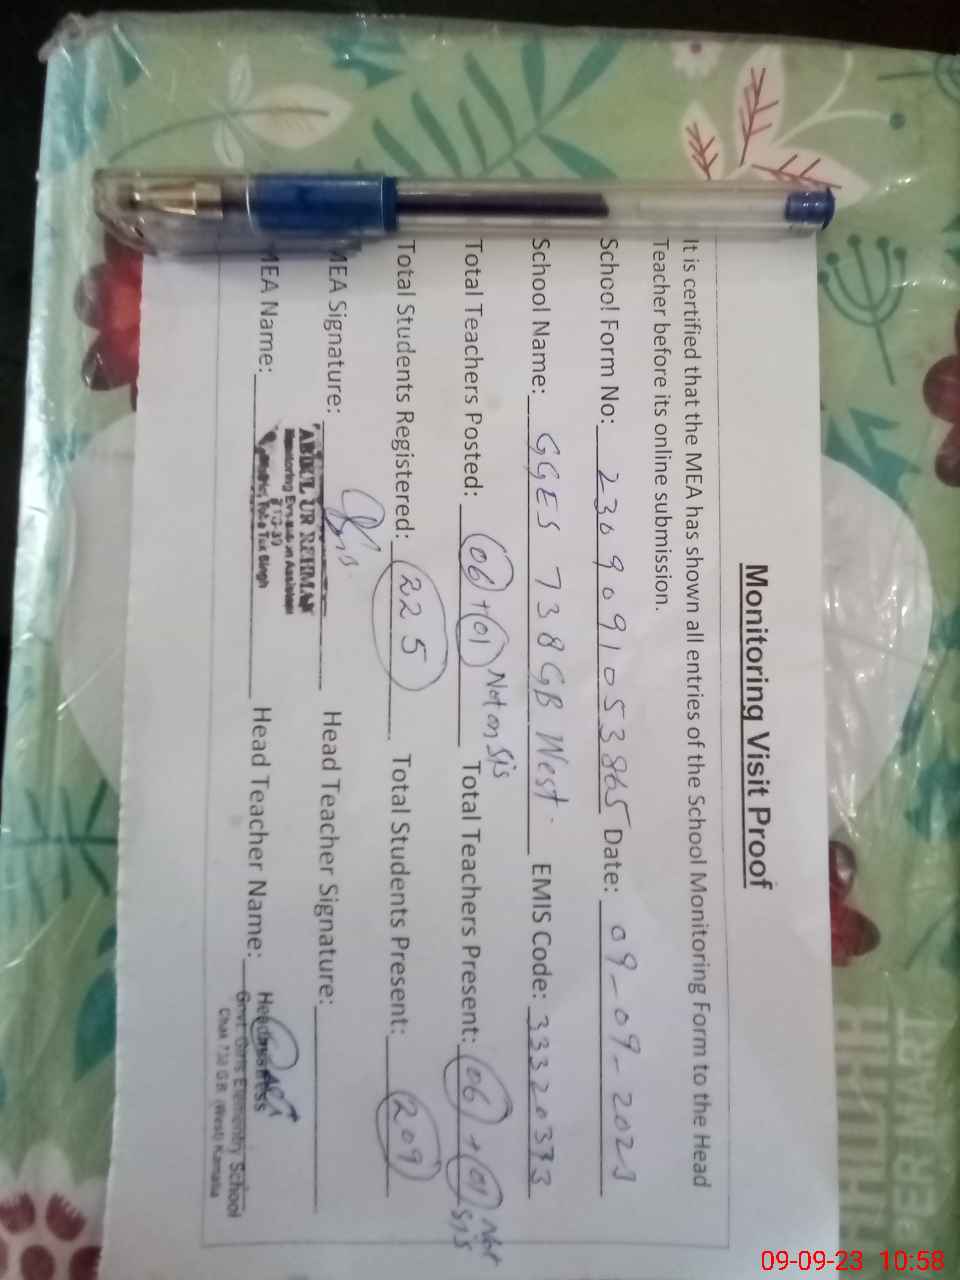 Monitoring Visit Proof
It is certified that the MEA has shown all entries of the School Monitoring Form to the Head
Teacher before its online submission.
School Form No: 230909105 3865 Date: 09-09-2023
School Name: GGES 738 GB West. EMIS Code: 33320333
Total Teachers Posted: 06 + 01 Not on Sis Total Teachers Present: 06 + 01 Not Sis
Total Students Registered: 225 Total Students Present: 209
MEA Signature: Head Teacher Signature:
ABDUL UR REHMAN
Monitoring Evaluation Assistant
Tek Singh
MEA Name: Head Teacher Name:
Headmistress
Govt. Girls Elementry School
Chak 738 G.B (West) Kamalia
09-09-23 10:58